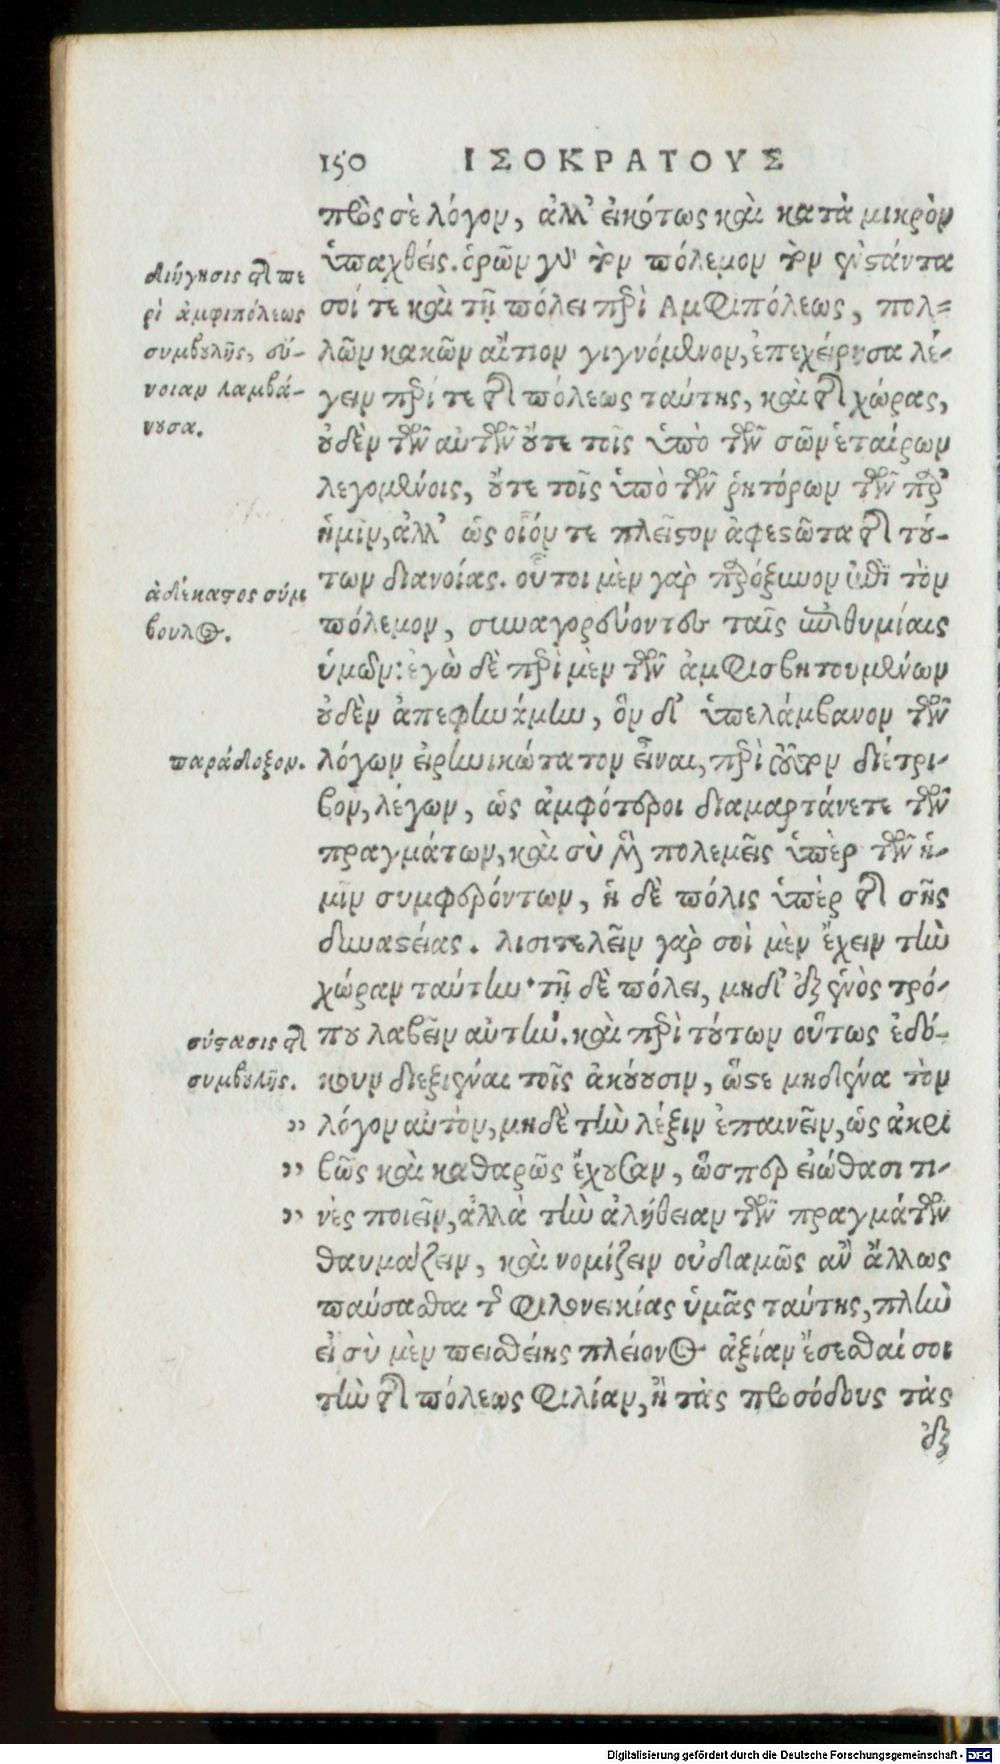 150 ΙΣΟΚΡΑΤΟΥΣ
πρὸς σὲ λόγον, ἀλλ' εἰκότως καὶ κατὰ μικρὸν
ὑπαχθείς. ὁρῶν γὰρ τὸν πόλεμον τὸν ἐνστάντα
σοί τε καὶ τῇ πόλει περὶ Αμφιπόλεως, πολ=
λῶν κακῶν αἴτιον γιγνόμενον, ἐπεχείρησα λέ-
γειν περί τε τῆς πόλεως ταύτης, καὶ τῆς χώρας,
οὐδὲν τῶν αὐτῶν οὔτε τοῖς ὑπὸ τῶν σῶν ἑταίρων
λεγομένοις, οὔτε τοῖς ὑπὸ τῶν ῥητόρων τῶν παρ'
ἡμῖν, ἀλλ' ὡς οἷόν τε πλεῖστον ἀφεστῶτα τῆς τού-
των διανοίας. οὗτοι μὲν γὰρ παρώξυνον ἐπὶ τὸν
πόλεμον, συναγορεύοντες ταῖς ἐπιθυμίαις
ὑμῶν: ἐγὼ δὲ περὶ μὲν τῶν ἀμφισβητουμένων
οὐδὲν ἀπεφηνάμην, ὃν δ' ὑπελάμβανον τῶν
λόγων εἰρηνικώτατον εἶναι, περὶ τοῦτον διέτρι-
βον, λέγων, ὡς ἀμφότεροι διαμαρτάνετε τῶν
πραγμάτων, καὶ σὺ μὲν πολεμεῖς ὑπὲρ τῶν ἡ-
μῖν συμφερόντων, ἡ δὲ πόλις ὑπὲρ τῆς σῆς
δυναστείας. λυσιτελεῖν γὰρ σοὶ μὲν ἔχειν τὴν
χώραν ταύτην· τῇ δὲ πόλει, μηδ' ἐξ ἑνὸς τρό-
που λαβεῖν αὐτήν. καὶ περὶ τούτων οὕτως ἐδό-
κουν διεξιέναι τοῖς ἀκούουσιν, ὥστε μηδένα τὸν
λόγον αὐτὸν, μηδὲ τὴν λέξιν ἐπαινεῖν, ὡς ἀκρι
βῶς καὶ καθαρῶς ἔχουσαν, ὥσπερ εἰώθασι τι-
νὲς ποιεῖν, ἀλλὰ τὴν ἀλήθειαν τῶν πραγμάτων
θαυμάζειν, καὶ νομίζειν οὐδαμῶς ἂν ἄλλως
παύσασθαι τῆς φιλονεικίας ὑμᾶς ταύτης, πλὴν
εἰ σὺ μὲν πεισθείης πλείονος ἀξίαν ἔσεσθαί σοι
τὴν τῆς πόλεως φιλίαν, ἢ τὰς προσόδους τὰς
ἐξ
διήγησις τῆς πε
ρὶ ἀμφιπόλεως
συμβουλῆς, σύ-
νοιαν λαμβά-
νουσα.
ἀδέκαστος σύμ
βουλος.
παράδοξον.
σύστασις τῆς
συμβουλῆς.
„
„
„
Digitalisierung gefördert durch die Deutsche Forschungsgemeinschaft - DFG